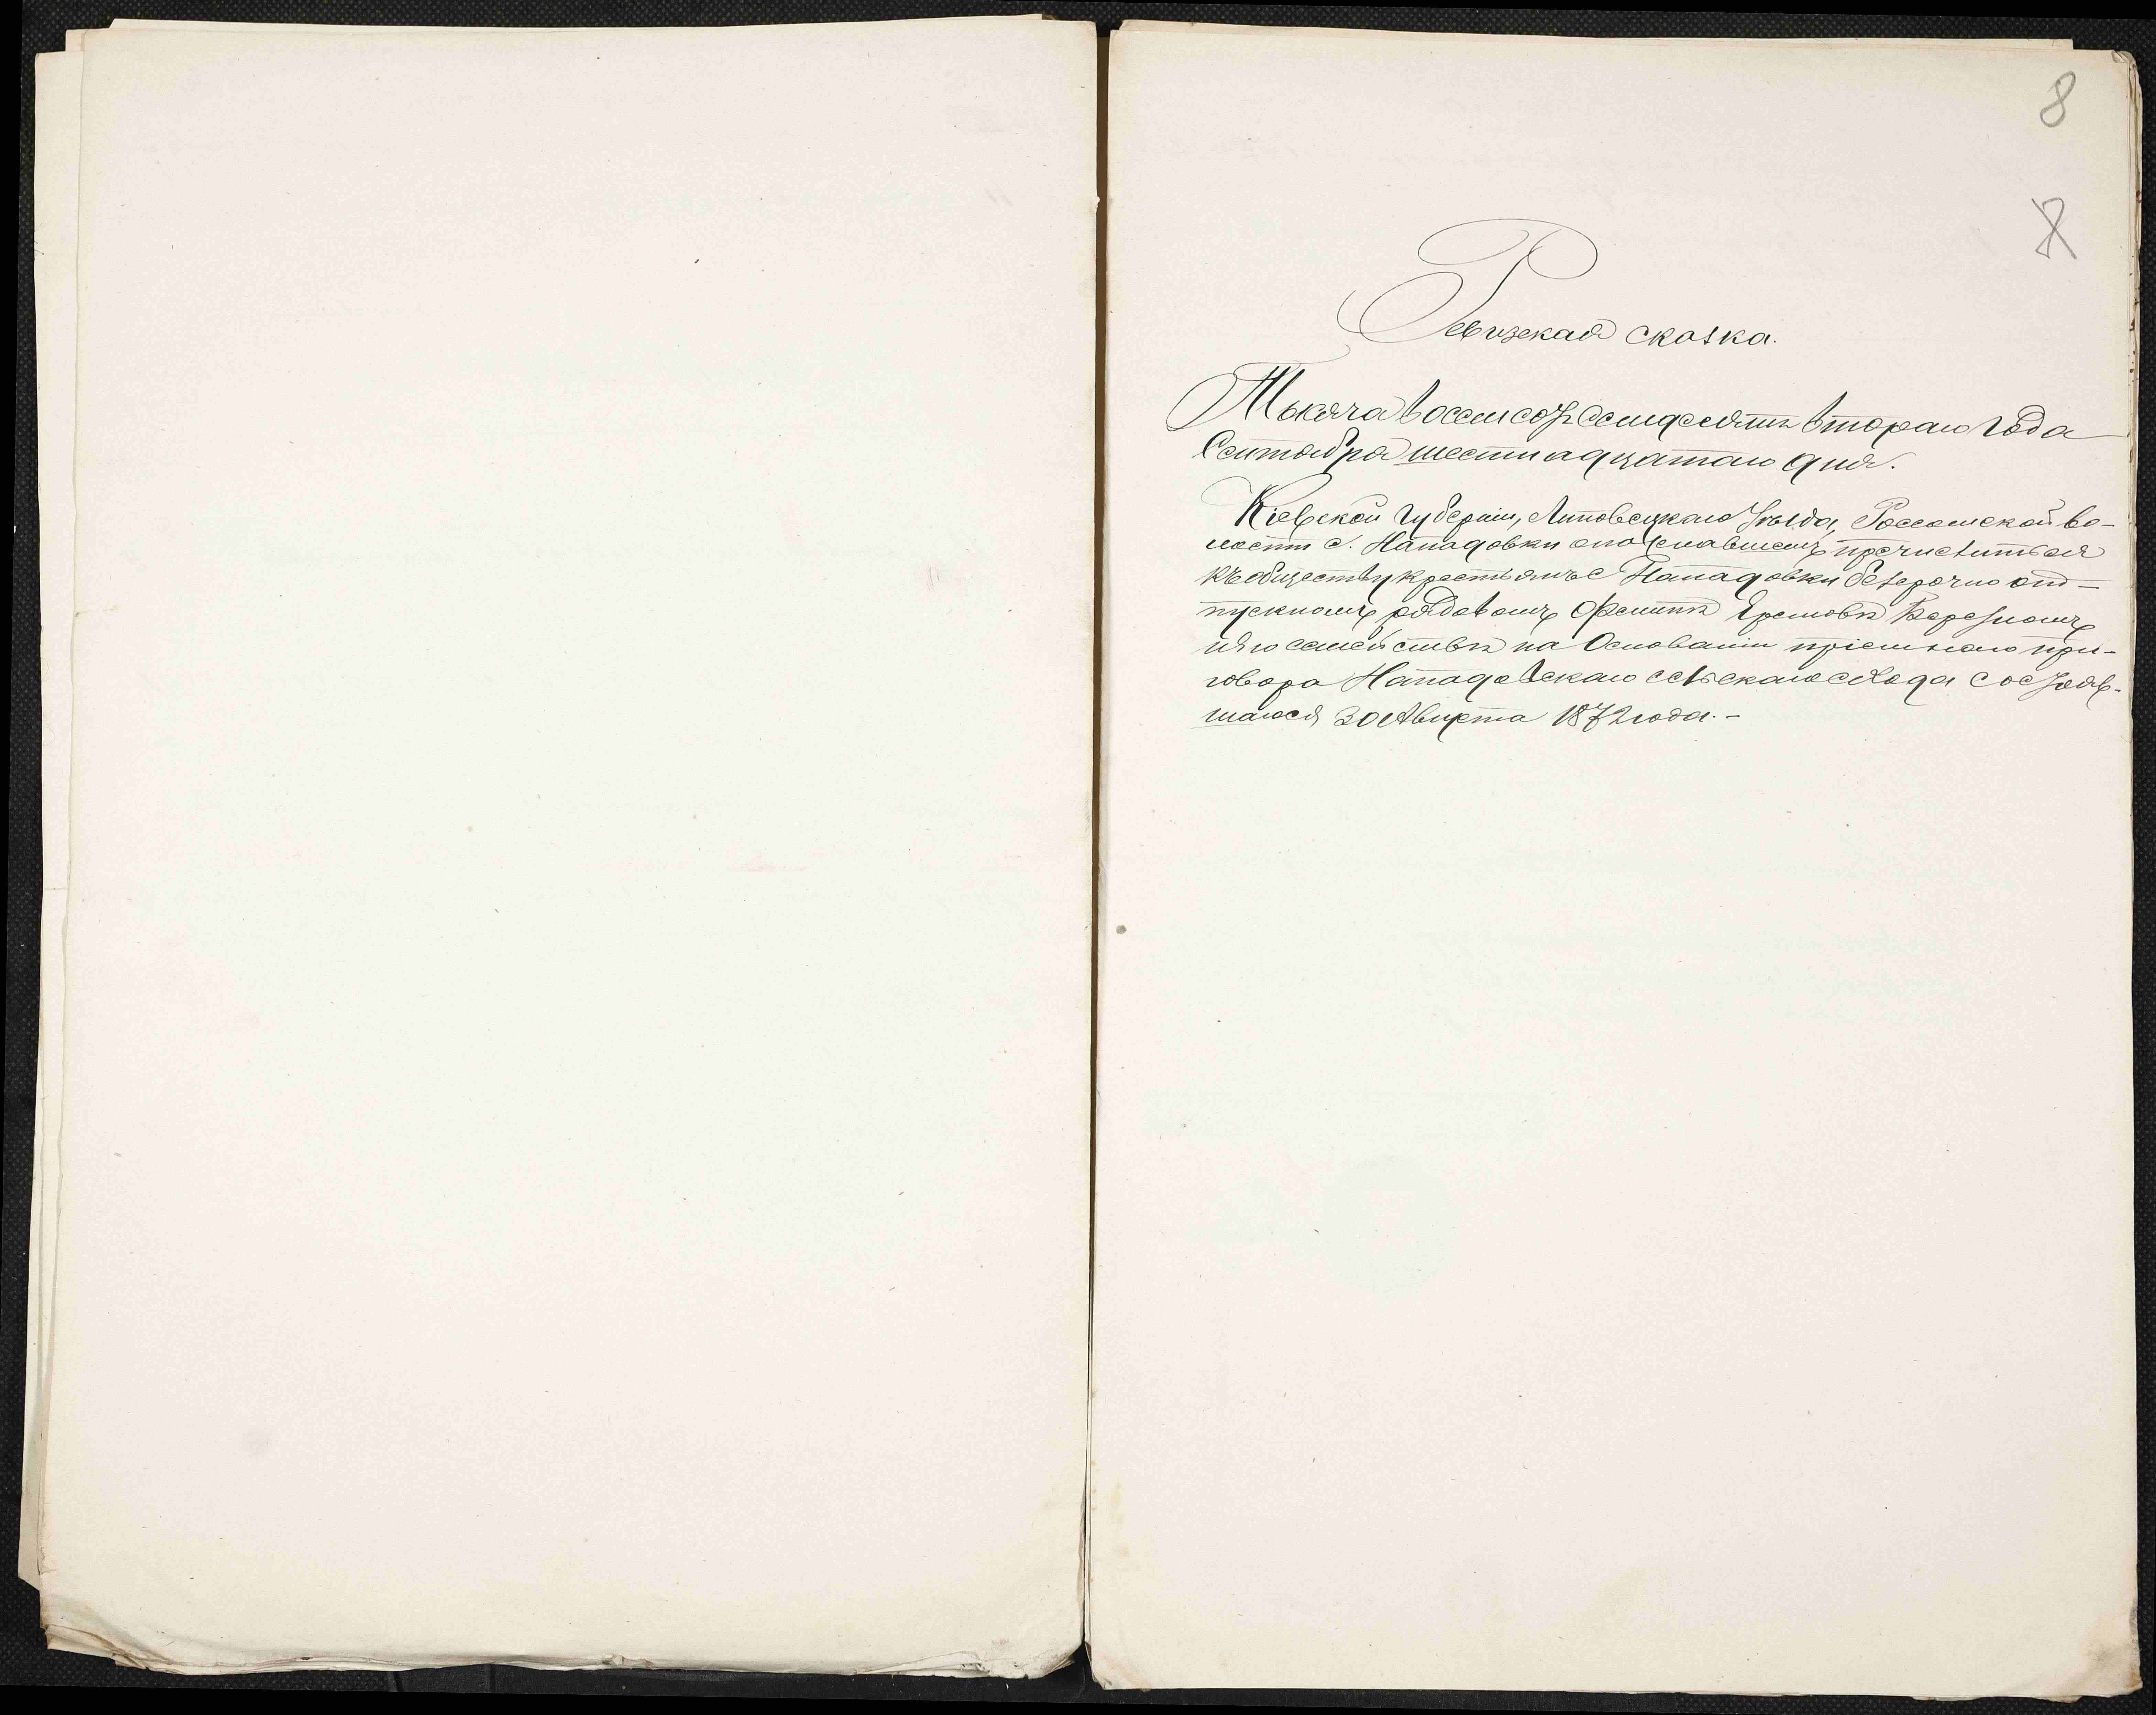 8
8
Ревизская сказка.
Тысяча восемсотъ семидесятъ втораго года
Сентября шестнадцатаго дня.
Кіевской губерніи, Липовецкаго Уѣзда, Россошской во-
лости с. Нападовки о пожелавшемъ причислиться
къ обществу крестьянъ с Нападовки безсрочно от-
пускномъ рядовомъ Ѳ Яремовѣ Березномъ
и его семействѣ на Основаніи пріемнаго при-
говора Нападовскаго сельскаго схода состояв-
шагося 30 Августа 1872 года.-